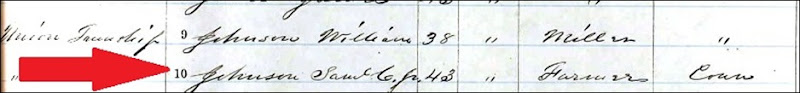 Union Township 9 Johnson William 38 " Miller "
" 10 Johnson Saml C. Jr. 43 " Farmer Conn